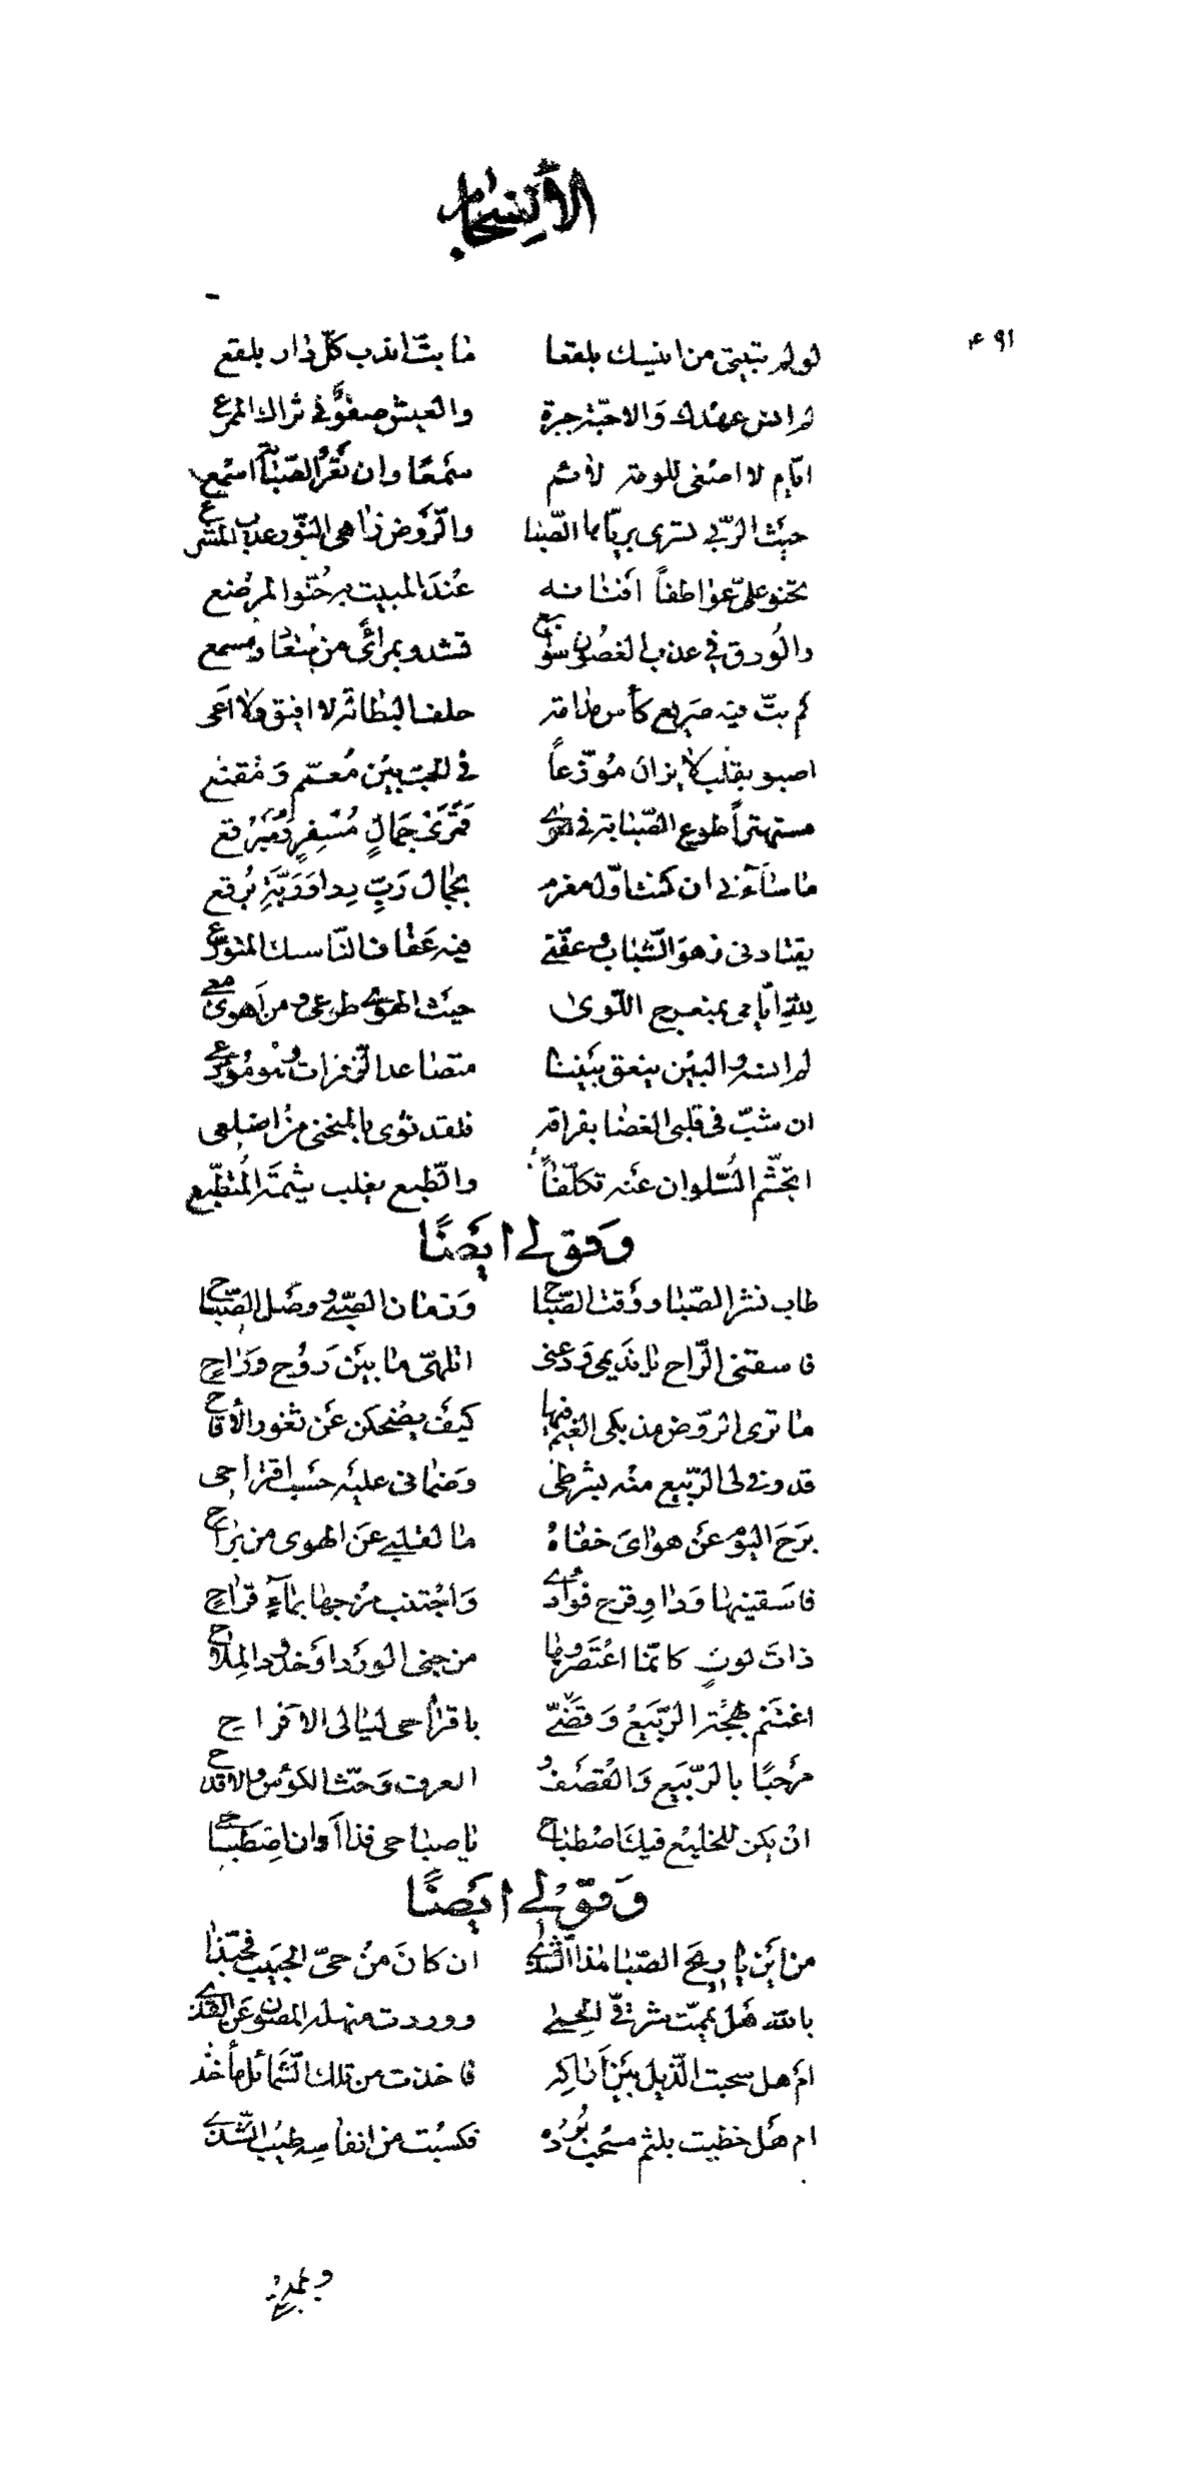 ٤٩١
لو لم تبقى من انيسك بلقعا ما بتّ اندب كلّ دار بلقع
لم انس عهدك والاحبّة جيرة والعيش صفوٌ في ثراك الممرع
ايّام لا اصغى للومة لائم سمعًا وان نقر الصّبا اسمع
حيث الرّبى تسرى بريّاها الصّبا والرّوض زاهى النّور عذب المشرع
تحنو علىّ عواطفاً افنانه عند المبيت حنوّ المرضع
والورق في عذب الغصون سواجع تشدو بمرأى من سعاد ومسمع
كم بتّ فيه صريع كأس مدامة حلف البطالة لا افيق ولا اعى
اصبو بقلب لا يزال موزّعاً في الحبّ بين معمّم ومقنّع
مستهتراً طوع الصّبابة في هوى قمرى جمال مسفر ومبرقع
ما ساءنى ان كنت اوّل مغرم بجمال ربّ رداً وربّة برقع
يقتادنى زهو الشّباب وعفّتى فيه عفاف النّاسك المتورّع
لله ايّامى بمنعرج اللّوى حيث الهوى طوعى ومن اهوى معى
لم انسه والبين ينعق بيننا متصاعد الزّفرات وهو مودّعى
ان شبّ فى قلبى الغضا بفراقه فلقد ثوى بالمنحنى من اضلعى
اتجشّم السّلوان عنه تكلّفاً والطّبع يغلب شيمة المتطبّع
وقولى ايضًا
طاب نشر الصّبا ووقت الصّباح وزمان الصّبى ووصل الصّباح
فاسقنى الرّاح يا نديمى ودعنى اتلهّى ما بين روح وراح
ما ترى الرّوض مذ بكى الغيم فيها كيف يضحكن عن ثغور الأقاح
قد وفى لى الرّبيع منه بشرطى وضمانى عليه حسب اقتراحى
برح اليوم عن هواى خفاه ما لقلبى عن الهوى من براح
فاسقينها وداو قرح فؤادى واجتنب مزجها بماء قراح
ذات لون كانّما اعتصروها من جنى الورد او خدود الملاح
اغتنم بهجة الرّبيع وقضّى باقتراحى ليالى الافراح
مرحبًا بالرّبيع والقصف و العرف وحثّ الكؤس والاقداح
ان يكن للخليع فيك اصطباح يا صباحى فذا أوان اصطباحى
وقولى ايضًا
من اين يا ريح الصّبا هذا الشّذى ان كان من حىّ الحبيب فحبّذا
بالله هل يمّمت شرقىّ الحمى ووردت منهله المصون عن القذى
ام هل سحبت الذّيل بين اناكر فاخذت من تلك الشّمائل مأخذا
ام هل حظيت بلثم مسحب برده فكسبت من انفاسه طيب الشّذى